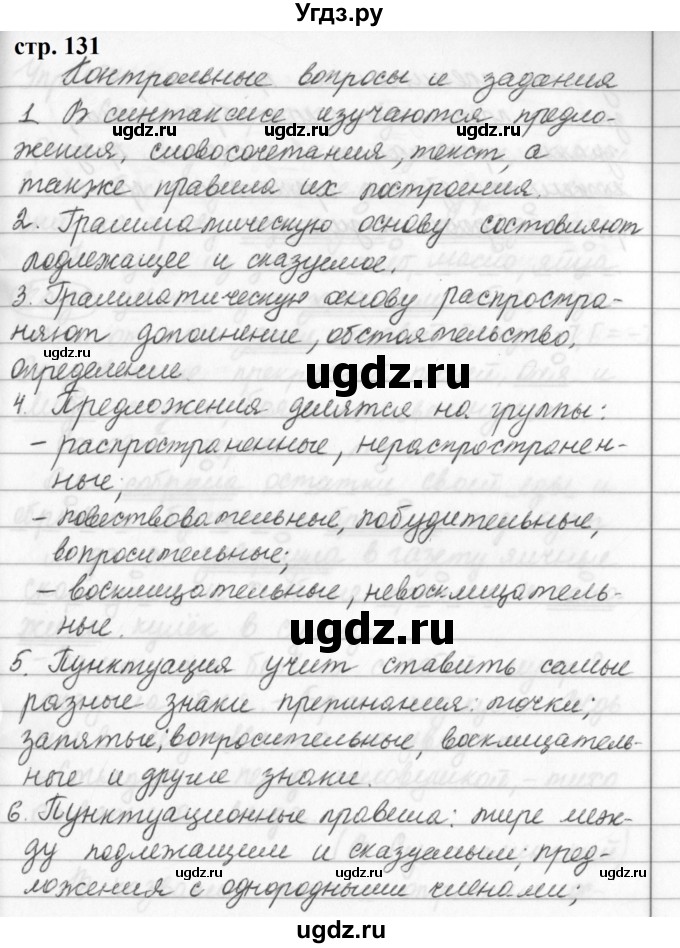 Угдз.ру
стр. 131
Контрольные вопросы и задания
1. В синтаксисе изучаются предло-
жения, словосочетания, текст, а
также правила их построения.
2. Грамматическую основу составляют
подлежащее и сказуемое.
3. Грамматическую основу распростра-
няют дополнение, обстоятельство,
определение.
4. Предложения делятся на группы:
- распространенные, нераспространен-
ные;
- повествовательные, побудительные,
вопросительные;
- восклицательные, невосклицатель-
ные.
5. Пунктуация учит ставить самые
разные знаки препинания: точки;
запятые; вопросительные, восклицатель-
ные и другие знаки.
6. Пунктуационные правила: тире меж-
ду подлежащим и сказуемым; пред-
ложения с однородными членами;